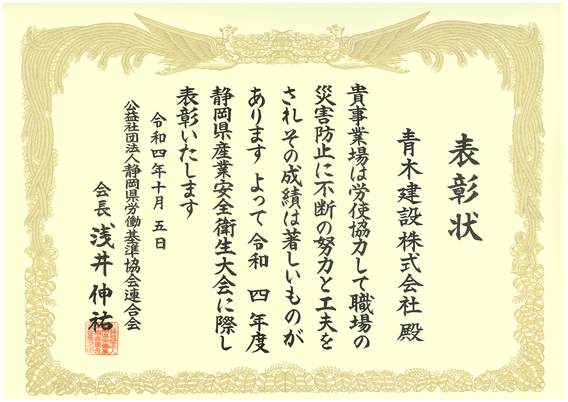 表彰状
青木建設株式会社 殿
貴事業場は労使協力して職場の
災害防止に不断の努力と工夫を
され その成績は著しいものが
あります よって 令和 四 年度
静岡県産業安全衛生大会に際し
表彰いたします
令和四年十月 五 日
公益社団法人静岡県労働基準協会連合会
会長 浅井 伸祐